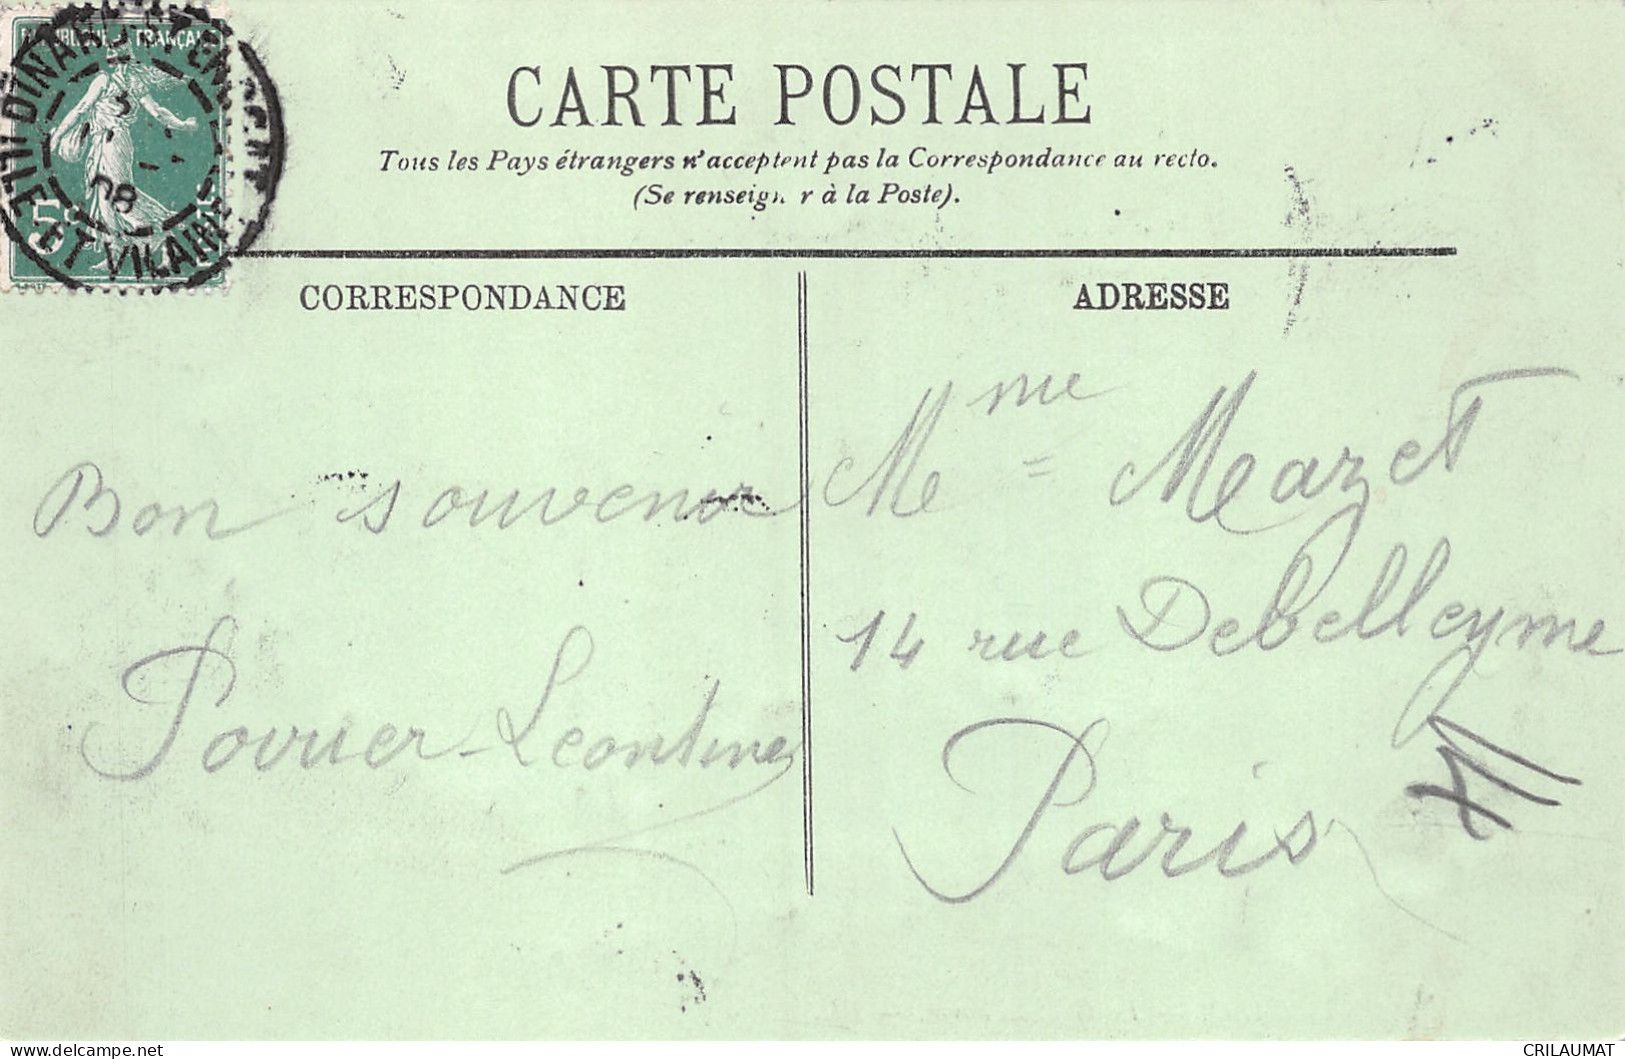 REPUBLIQUE FRANÇAISE
DINARD ST ENOGAT
3
08
ILLE ET VILAINE
5c
CARTE POSTALE
Tous les Pays étrangers n'acceptent pas la Correspondance au recto.
(Se renseigner à la Poste).
CORRESPONDANCE
Bon souvenir
Poirier Leontine
ADRESSE
Mme Mazet
14 rue Debelleyme
Paris
delcampe.net
CRILAUMAT